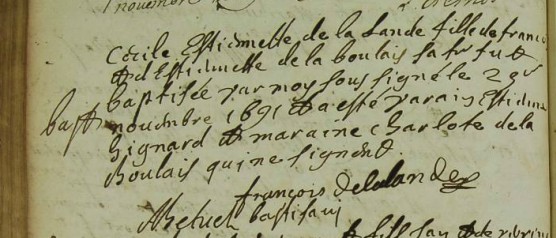 1 novembre
Cecile Estiennette de la Lande fille de francois
et d'Estiennette de la boulais sa fe fut
baptisée par moy sous signé le 29e
bapt novembre 1691 et a esté parain Estienne
Signard et maraine charlote de la
Boulais qui ne signent.
françois delalande
baptisavi